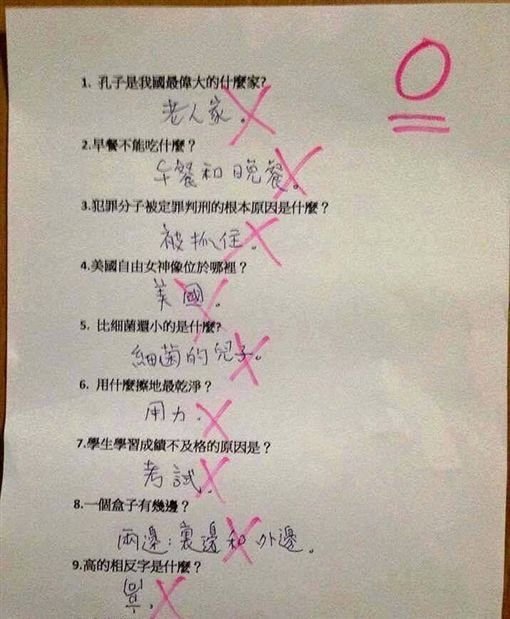 0
1. 孔子是我國最偉大的什麼家?
老人家。
2.早餐不能吃什麼？
午餐和晚餐。
3.犯罪分子被定罪判刑的根本原因是什麼？
被抓住。
4.美國自由女神像位於哪裡？
美國。
5. 比細菌還小的是什麼?
細菌的兒子。
6. 用什麼擦地最乾淨？
用力。
7.學生學習成績不及格的原因是？
考試。
8.一個盒子有幾邊？
兩邊：裏邊和外邊。
9.高的相反字是什麼？